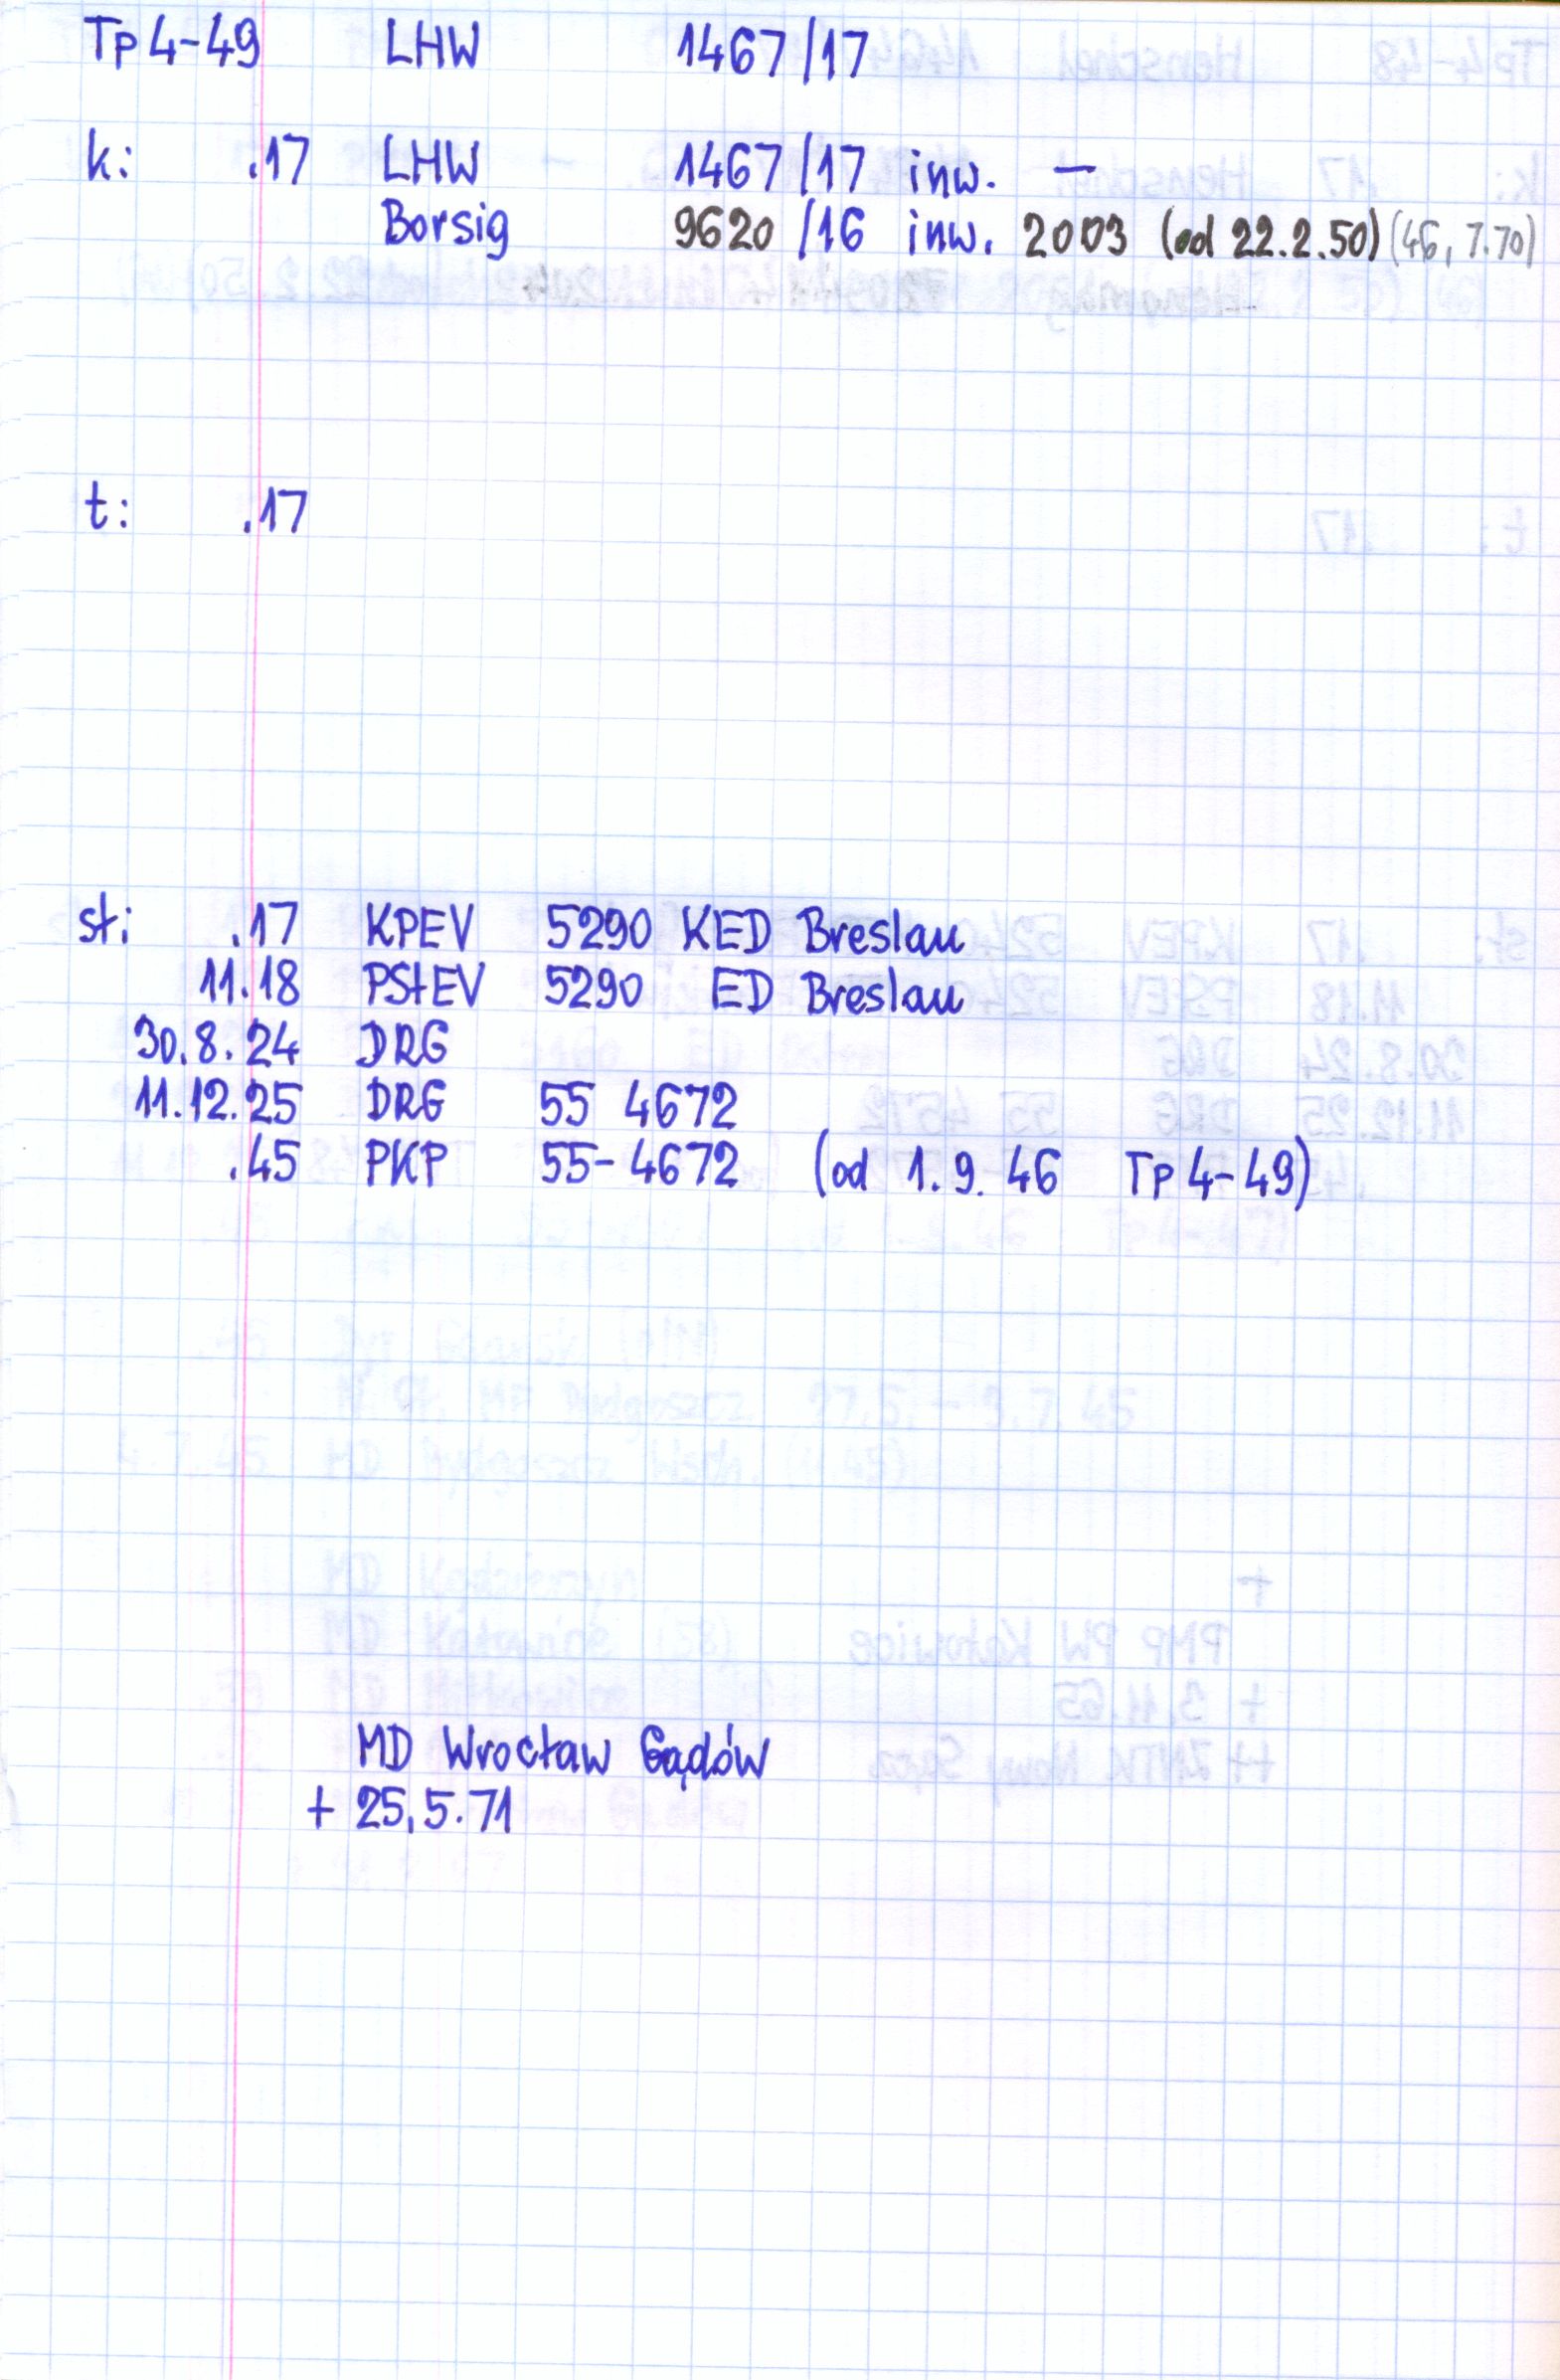 Tp4-49 LHW 1467/17
k: .17 LHW 1467/17 inw. —
Borsig 9620/16 inw. 2003 (od 22.2.50) (46, 7.70)
t: .17
st: .17 KPEV 5290 KED Breslau
11.18 PStEV 5290 ED Breslau
30.8.24 DRG
11.12.25 DRG 55 4672
.45 PKP 55-4672 (od 1.9.46 Tp4-49)
MD Wrocław Gądów
+ 25.5.71